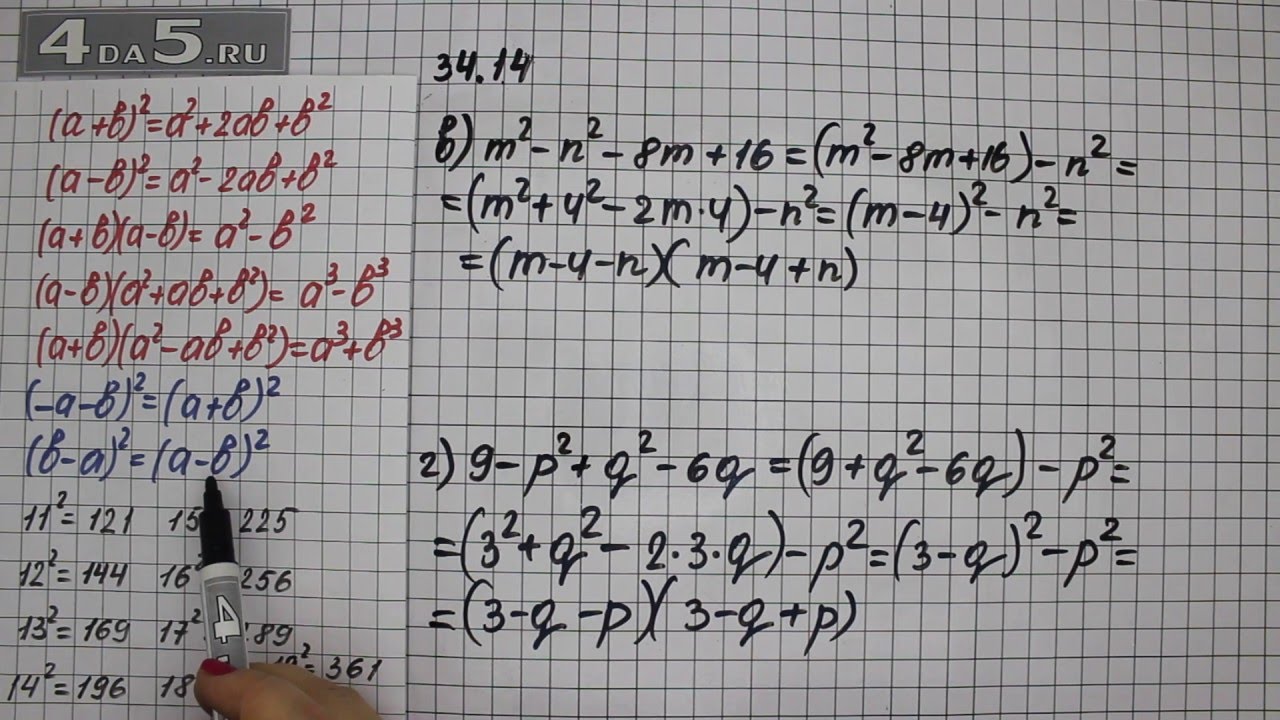 4DA5.RU
(a+b)²=a²+2ab+b²
(a-b)²=a²-2ab+b²
(a+b)(a-b)=a²-b²
(a-b)(a²+ab+b²)=a³-b³
(a+b)(a²-ab+b²)=a³+b³
(-a-b)²=(a+b)²
(b-a)²=(a-b)²
11²=121 15 225
12²=144 16² 256
13²=169 17² 89
14²=196 18 19²=361
34.14
в) m²-n²-8m+16=(m²-8m+16)-n²=
=(m²+4²-2m·4)-n²=(m-4)²-n²=
=(m-4-n)(m-4+n)
г) 9-p²+q²-6q=(9+q²-6q)-p²=
=(3²+q²-2·3·q)-p²=(3-q)²-p²=
=(3-q-p)(3-q+p)